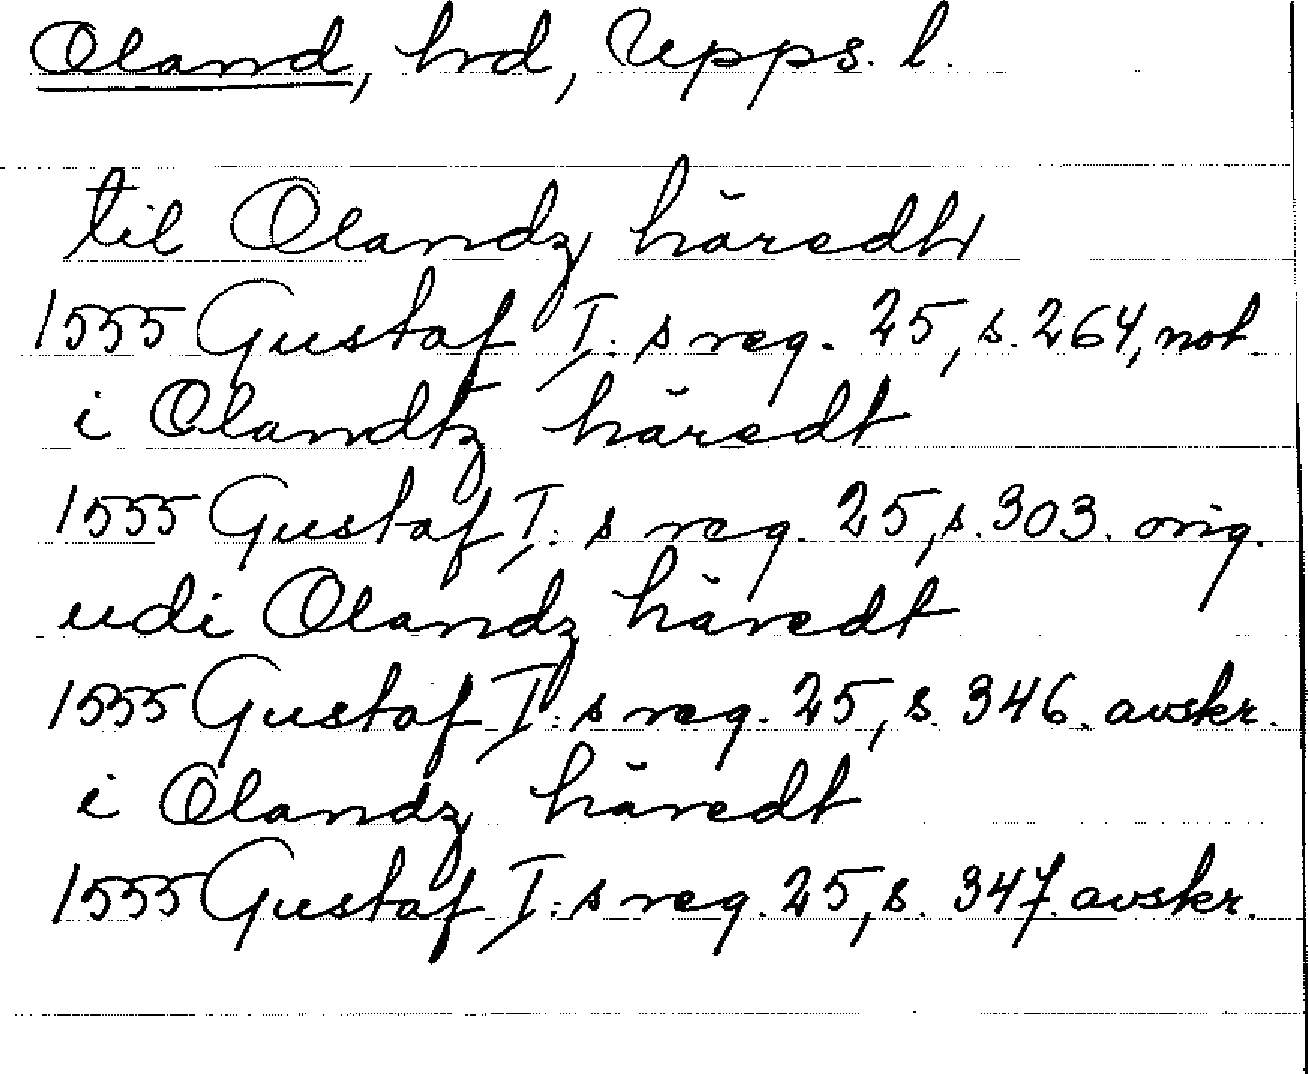 Oland, hrd, Upps. l.
til Olandz häredh
1555 Gustaf I:s reg. 25, s. 264, not.
i Olandtz häredt
1555 Gustaf I:s reg. 25, s. 303. orig.
udi Olandz häredt
1555 Gustaf I:s reg. 25, s. 346. avskr.
i Olandz häredt
1555 Gustaf I:s reg. 25, s. 347. avskr.